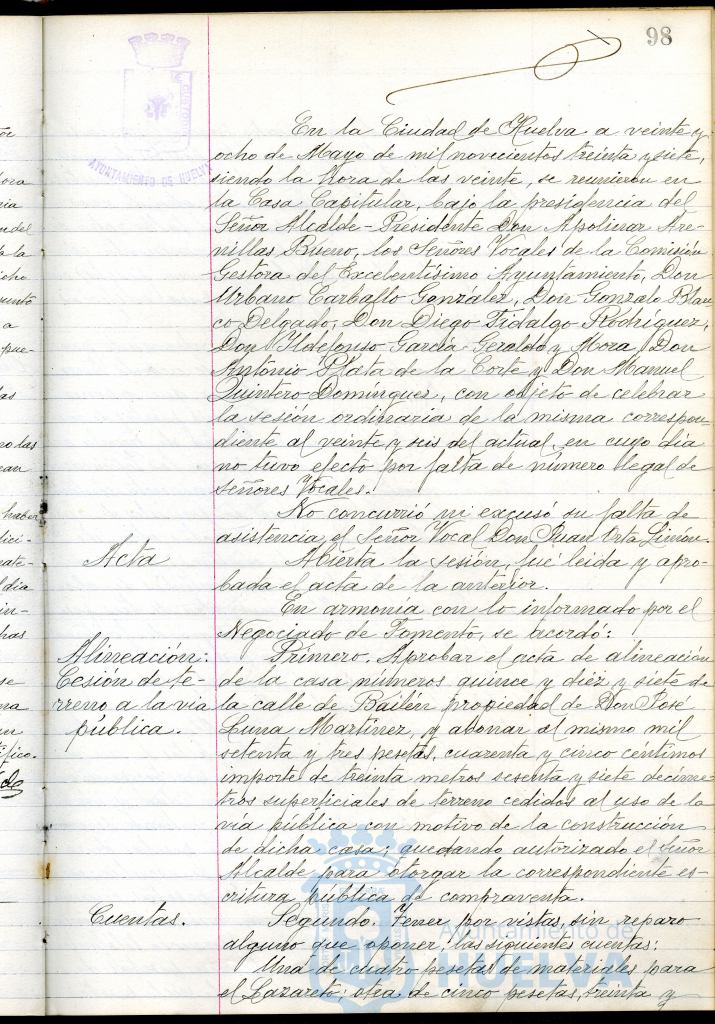 98
AYUNTAMIENTO DE HUELVA
En la Ciudad de Huelva a veinte y
ocho de Mayo de mil novecientos treinta y siete,
siendo la hora de las veinte, se reunieron en
la Casa Capitular, bajo la presidencia del
Señor Alcalde-Presidente Don Apolinar Are-
nillas Bueno, los Señores Vocales de la Comisión
Gestora del Excelentísimo Ayuntamiento, Don
Urbano Carballo González, Don Gonzalo Blan-
co Delgado, Don Diego Fidalgo Rodríguez,
Don Ildefonso García Geraldo y Mora, Don
Antonio Plata de la Corte y Don Manuel
Quintero Domínguez, con objeto de celebrar
la sesión ordinaria de la misma correspon-
diente al veinte y seis del actual, en cuyo dia
no tuvo efecto por falta de número legal de
Señores Vocales.
No concurrió ni excusó su falta de
asistencia el Señor Vocal Don Juan Orta Liñán.
Acta
Abierta la sesión, fué leida y apro-
bada el acta de la anterior.
En armonia con lo informado por el
Negociado de Fomento, se acordó:
Alineación:
Cesión de te-
rreno a la via
pública.
Primero. Aprobar el acta de alineación
de la casa números quince y diez y siete de
la calle de Bailén propiedad de Don José
Luna Martínez, y abonar al mismo mil
setenta y tres pesetas, cuarenta y cinco céntimos
importe de treinta metros sesenta y siete decime-
tros superficiales de terreno cedidos al uso de la
via pública con motivo de la construcción
de dicha casa; quedando autorizado el Señor
Alcalde para otorgar la correspondiente es-
critura pública de compraventa.
Cuentas.
Segundo. Tener por vistas, sin reparo
alguno que oponer, las siguientes cuentas:
Una de cuatro pesetas de materiales para
el Lazareto; otra de cinco pesetas, treinta y
Ayuntamiento de
HUELVA